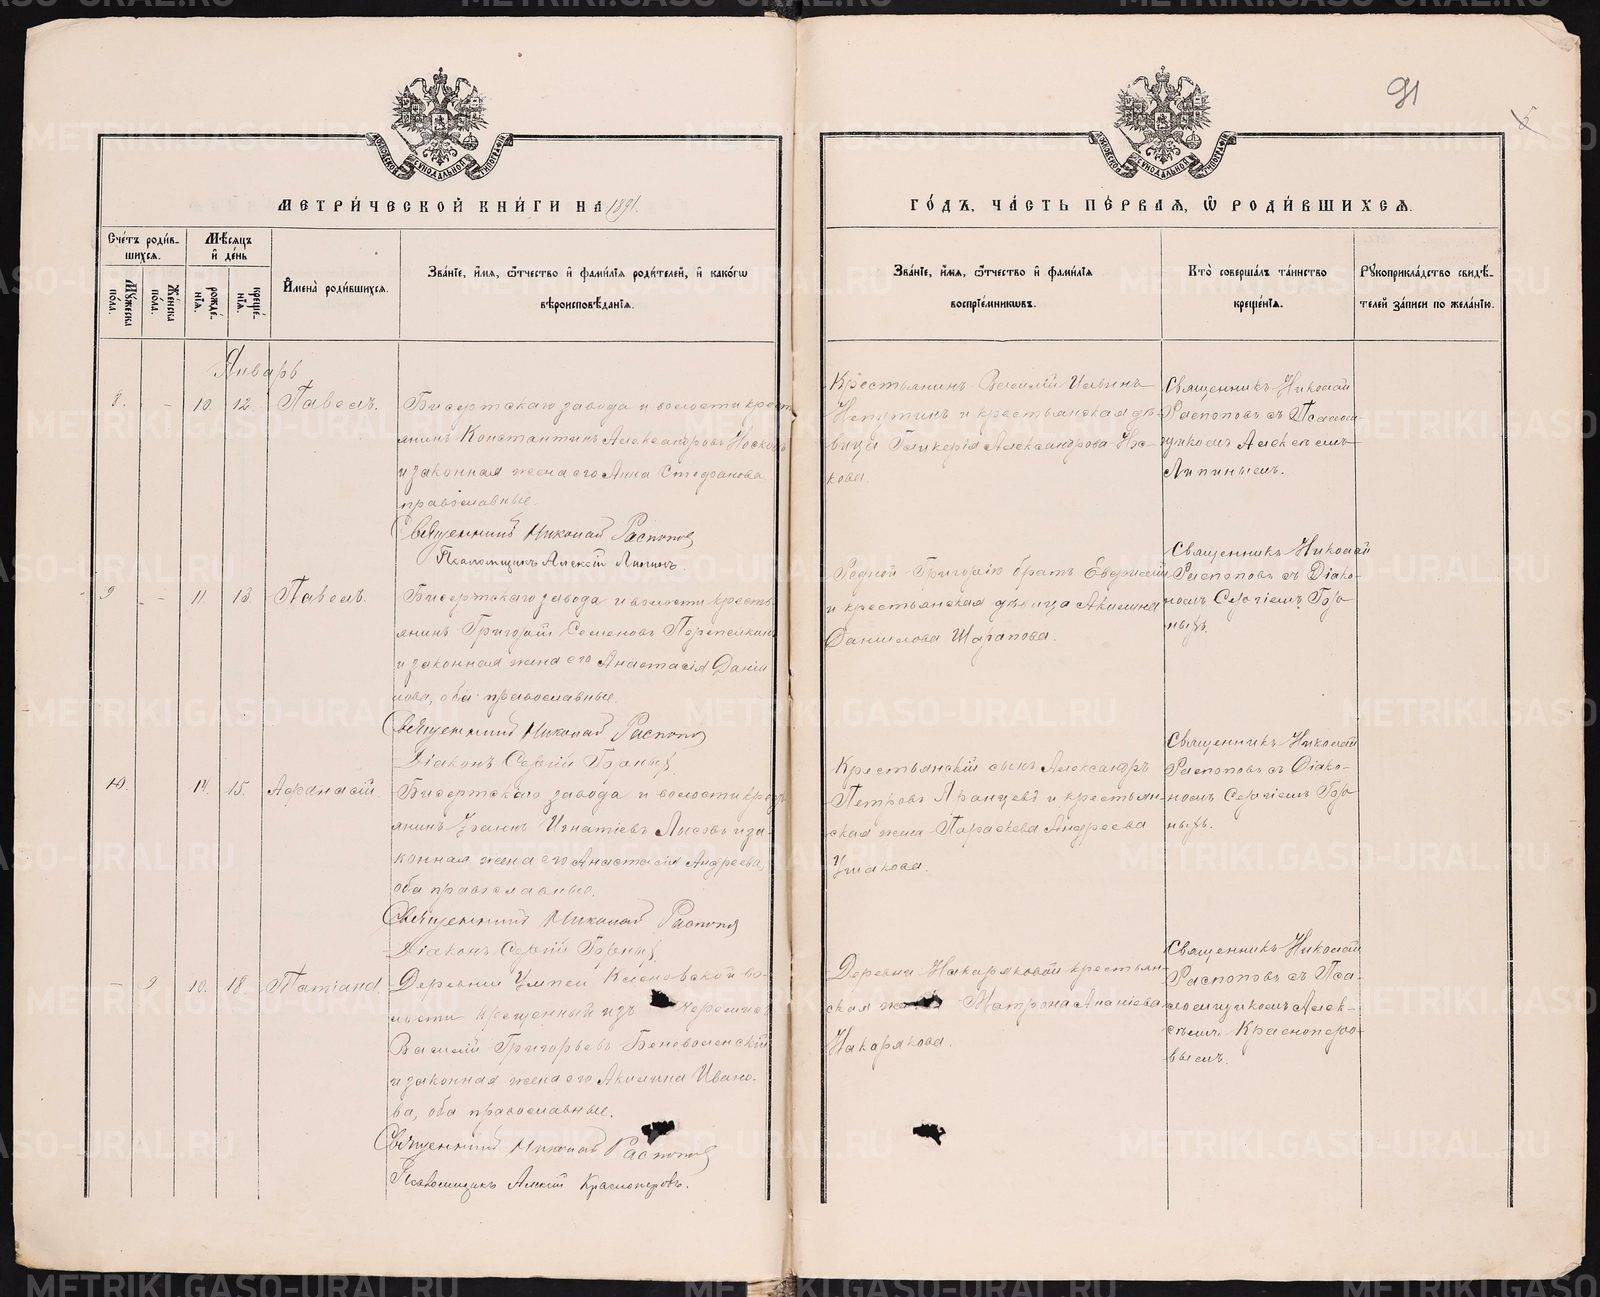 91
5
МЕТРИ́ЧЕСКОЙ КНИ́ГИ НА 1891.
ГО́ДЪ, ЧА́СТЬ ПЕ́РВАЯ, Ѡ РОДИ́ВШИХСЯ.
Сче́тъ роди́в-
шихся.
Мѣ́сяцъ
и де́нь
Мꙋжеска
по́ла.
Же́нска
по́ла.
рожде́-
нїя.
креще́-
нїя.
И́мена̀ роди́вшихся.
Зва́нїе, и́мя, ѻ́тчество и фами́лїя роди́телей, и како́гѡ
вѣроисповѣ́данїя.
Зва́нїе, и́мя, ѻ́тчество и фами́лїя
воспрїе́мниковъ.
Кто̀ соверша́лъ та́инство
креще́нїя.
Рꙋкоприкла́дство свидѣ́-
телей за́писи по жела́нїю.
Январь
8. - 10. 12. Павелъ.
Бисертскаго завода и волости крест
янинъ Константинъ Александровъ Носковъ
и законная жена его Анна Стефанова
православные.
Священникъ Николай Распоповъ
Псаломщикъ Алексій Липинъ.
Крестьянинъ Василій Ильинъ
и крестьянская дѣ-
вица Гликерія Александрова Нос-
кова.
Священникъ Николай
Распоповъ съ Псалом-
щикомъ Алексѣемъ
Липинымъ.
9 - 11. 13 Павелъ.
Бисертскаго завода и волости кресть-
янинъ Григорій Семеновъ Перепелкинъ
и законная жена его Анастасія Дани
лова, оба православные.
Священникъ Николай Распоповъ
Діаконъ Сергій
Родной Григорію братъ
и крестьянская дѣвица Акилина
Данилова Шарапова.
Священникъ Николай
Распоповъ съ Діако-
номъ Сергіемъ
10. 14. 15. Афанасій.
Бисертскаго завода и волости крест
янинъ Іоаннъ Игнатіевъ Лысовъ и за-
конная жена его Анастасія Андреева,
оба православные.
Священникъ Николай Распоповъ
Діаконъ Сергій
Крестьянскій сынъ Александръ
Петровъ и крестьян-
ская жена Параскева Андреева
Ушакова.
Священникъ Николай
Распоповъ съ Діако-
номъ Сергіемъ
- 9 10. 18. Татіана.
Деревни Кленовской во-
лости крещенный изъ черемисъ
Василій Григорьевъ Беневоленскій
и законная жена его Акилина Ивано-
ва, оба православные.
Священникъ Николай Распоповъ
Псаломщикъ Алексій Красноперовъ.
Деревни Накаряковой крестьян-
ская Матрона Ананіева
Накарякова.
Священникъ Николай
Распоповъ съ Пса-
ломщикомъ Алек-
сѣемъ Красноперо-
вымъ.